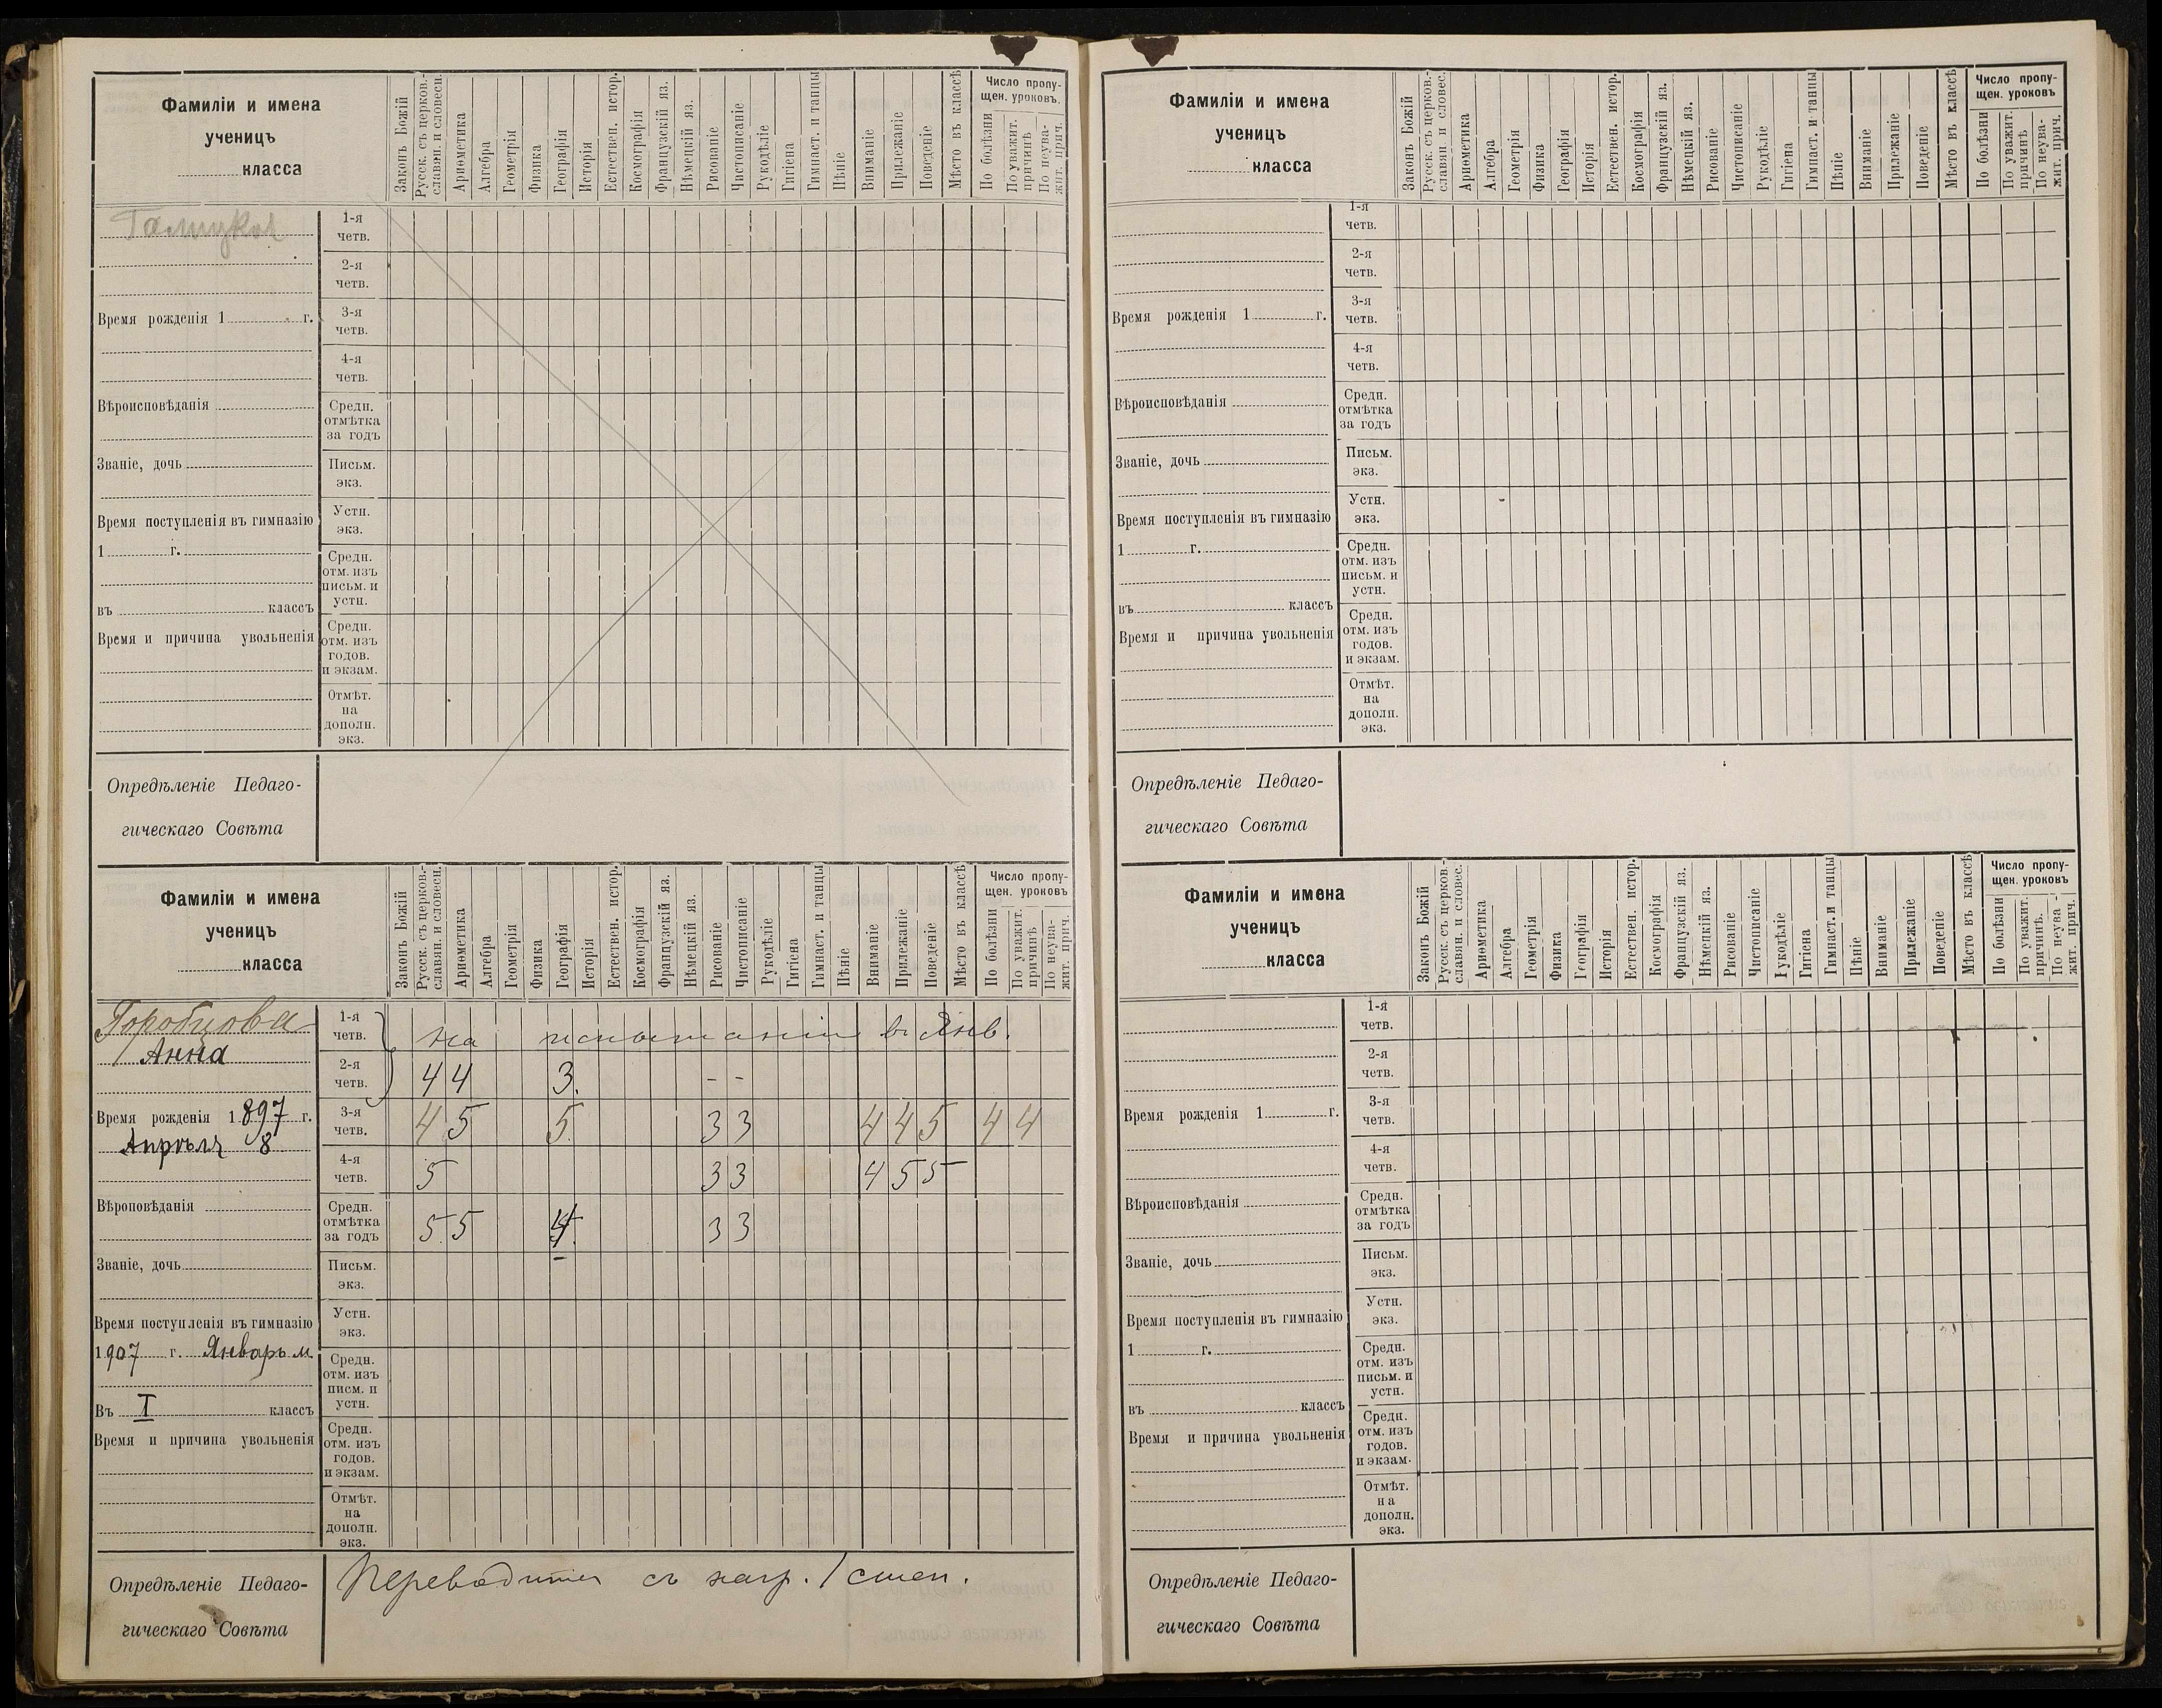 Фамиліи и имена
ученицъ
класса
Законъ Божій
Русск. съ церков.-
славян. и словесн.
Ариѳметика
Алгебра
Геометрія
Физика
Географія
Исторія
Естествен. истор.
Космографія
Французскій яз.
Нѣмецкій яз.
Рисованіе
Чистописаніе
Рукодѣліе
Гигіена
Гимнаст. и танцы
Пѣніе
Вниманіе
Прилежаніе
Поведеніе
Мѣсто въ классѣ
Число пропу-
щен. уроковъ.
По болѣзни
По уважит.
причинѣ
По неува-
жит. прич.
1-я
четв.
2-я
четв.
Время рожденія 1 г.
3-я
четв.
4-я
четв.
Вѣроисповѣданія
Средн.
отмѣтка
за годъ
Званіе, дочь
Письм.
экз.
Время поступленія въ гимназію
1 г.
Устн.
экз.
Средн.
отм. изъ
письм. и
устн.
въ классъ
Время и причина увольненія
Средн.
отм. изъ
годов.
и экзам.
Отмѣт.
на
дополн.
экз.
Опредѣленіе Педаго-
гическаго Совѣта
Фамиліи и имена
ученицъ
класса
Законъ Божій
Русск. съ церков.-
славян. и словесн.
Ариѳметика
Алгебра
Геометрія
Физика
Географія
Исторія
Естествен. истор.
Космографія
Французскій яз.
Нѣмецкій яз.
Рисованіе
Чистописаніе
Рукодѣліе
Гигіена
Гимнаст. и танцы
Пѣніе
Вниманіе
Прилежаніе
Поведеніе
Мѣсто въ классѣ
Число пропу-
щен. уроковъ
По болѣзни
По уважит.
причинѣ
По неува-
жит. прич.
Горобцова
Анна
1-я
четв.
на испытаніи въ Янв.
2-я
четв.
4 4 3. - -
Время рожденія 1897 г.
Апрѣля 8
3-я
четв.
4 5 5 3 3 4 4 5 4 4
4-я
четв.
5 3 3 4 5 5
Вѣроповѣданія
Средн.
отмѣтка
за годъ
5 5 4 3 3
Званіе, дочь
Письм.
экз.
Время поступленія въ гимназію
1907 г. Январь м.
Устн.
экз.
Средн.
отм. изъ
писм. и
устн.
Въ I классъ
Время и причина увольненія
Средн.
отм. изъ
годов.
и экзам.
Отмѣт.
на
дополн.
экз.
Опредѣленіе Педаго-
гическаго Совѣта
Переводится съ нагр. 1 степ.
Фамиліи и имена
ученицъ
класса
Законъ Божій
Русск. съ церков.-
славян и словес.
Ариѳметика
Алгебра
Геометрія
Физика
Географія
Исторія
Естествен. истор.
Космографія
Французскій яз.
Нѣмецкій яз.
Рисованіе
Чистописаніе
Рукодѣліе
Гигіена
Гимнаст. и танцы
Пѣніе
Вниманіе
Прилежаніе
Поведеніе
Мѣсто въ классѣ
Число пропу-
щен. уроковъ
По болѣзни
По уважит.
причинѣ
По неува-
жит. прич.
1-я
четв.
2-я
четв.
Время рожденія 1 г.
3-я
четв.
4-я
четв.
Вѣроисповѣданія
Средн.
отмѣтка
за годъ
Званіе, дочь
Письм.
экз.
Время поступленія въ гимназію
1 г.
Устн.
экз.
Средн.
отм. изъ
письм. и
устн.
въ классъ
Время и причина увольненія
Средн.
отм. изъ
годов.
и экзам.
Отмѣт.
на
дополн.
экз.
Опредѣленіе Педаго-
гическаго Совѣта
Фамиліи и имена
ученицъ
класса
Законъ Божій
Русск. съ церков.-
славян. и словес.
Ариѳметика
Алгебра
Геометрія
Физика
Географія
Исторія
Естествен. истор.
Космографія
Французскій яз.
Нѣмецкій яз.
Рисованіе
Чистописаніе
Рукодѣліе
Гигіена
Гимнаст. и танцы
Пѣніе
Вниманіе
Прилежаніе
Поведеніе
Мѣсто въ классѣ
Число пропу-
щен. уроковъ
По болѣзни
По уважит.
причинѣ.
По неува-
жит. прич.
1-я
четв.
2-я
четв.
Время рожденія 1 г.
3-я
четв.
4-я
четв.
Вѣроисповѣданія
Средн.
отмѣтка
за годъ
Званіе, дочь
Письм.
экз.
Время поступленія въ гимназію
1 г.
Устн.
экз.
Средн.
отм. изъ
письм. и
устн.
въ классъ
Время и причина увольненія
Средн.
отм. изъ
годов.
и экзам.
Отмѣт.
на
дополн.
экз.
Опредѣленіе Педаго-
гическаго Совѣта